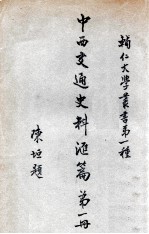 輔仁大學叢書第一種
中西交通史料滙篇 第一冊
陳垣題